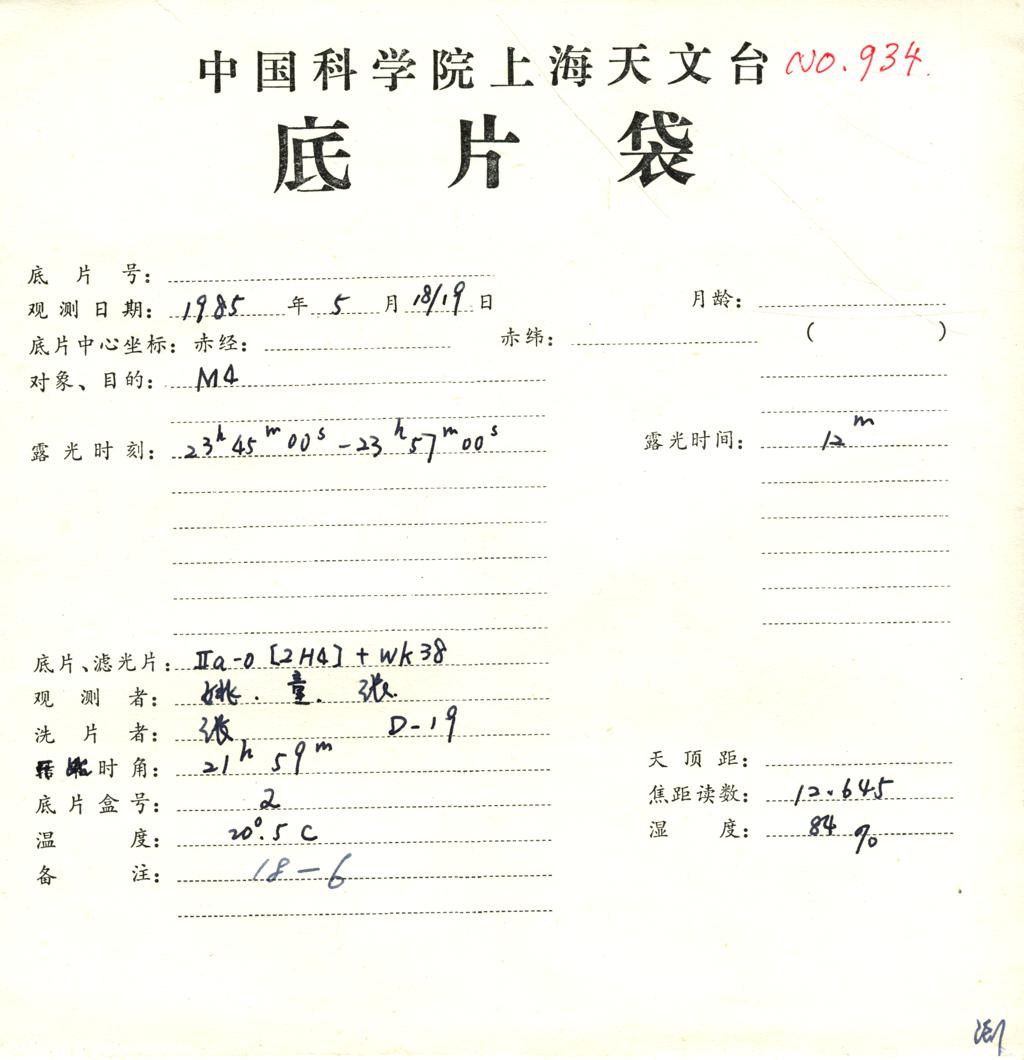 中国科学院上海天文台 NO.934.
底片袋
底片号：
观测日期：1985年5月18/19日 月龄：
底片中心坐标：赤经： 赤纬： ( )
对象、目的：M4
露光时刻：23h45m00s-23h57m00s 露光时间：12m
底片、滤光片：IIa-O [2H4] + WK38
观测者：姚.童.张.
洗片者：张 D-19
时角：21h59m 天顶距：
底片盒号：2 焦距读数：12.645
温度：20°.5C 湿度：84%
备注：18-6